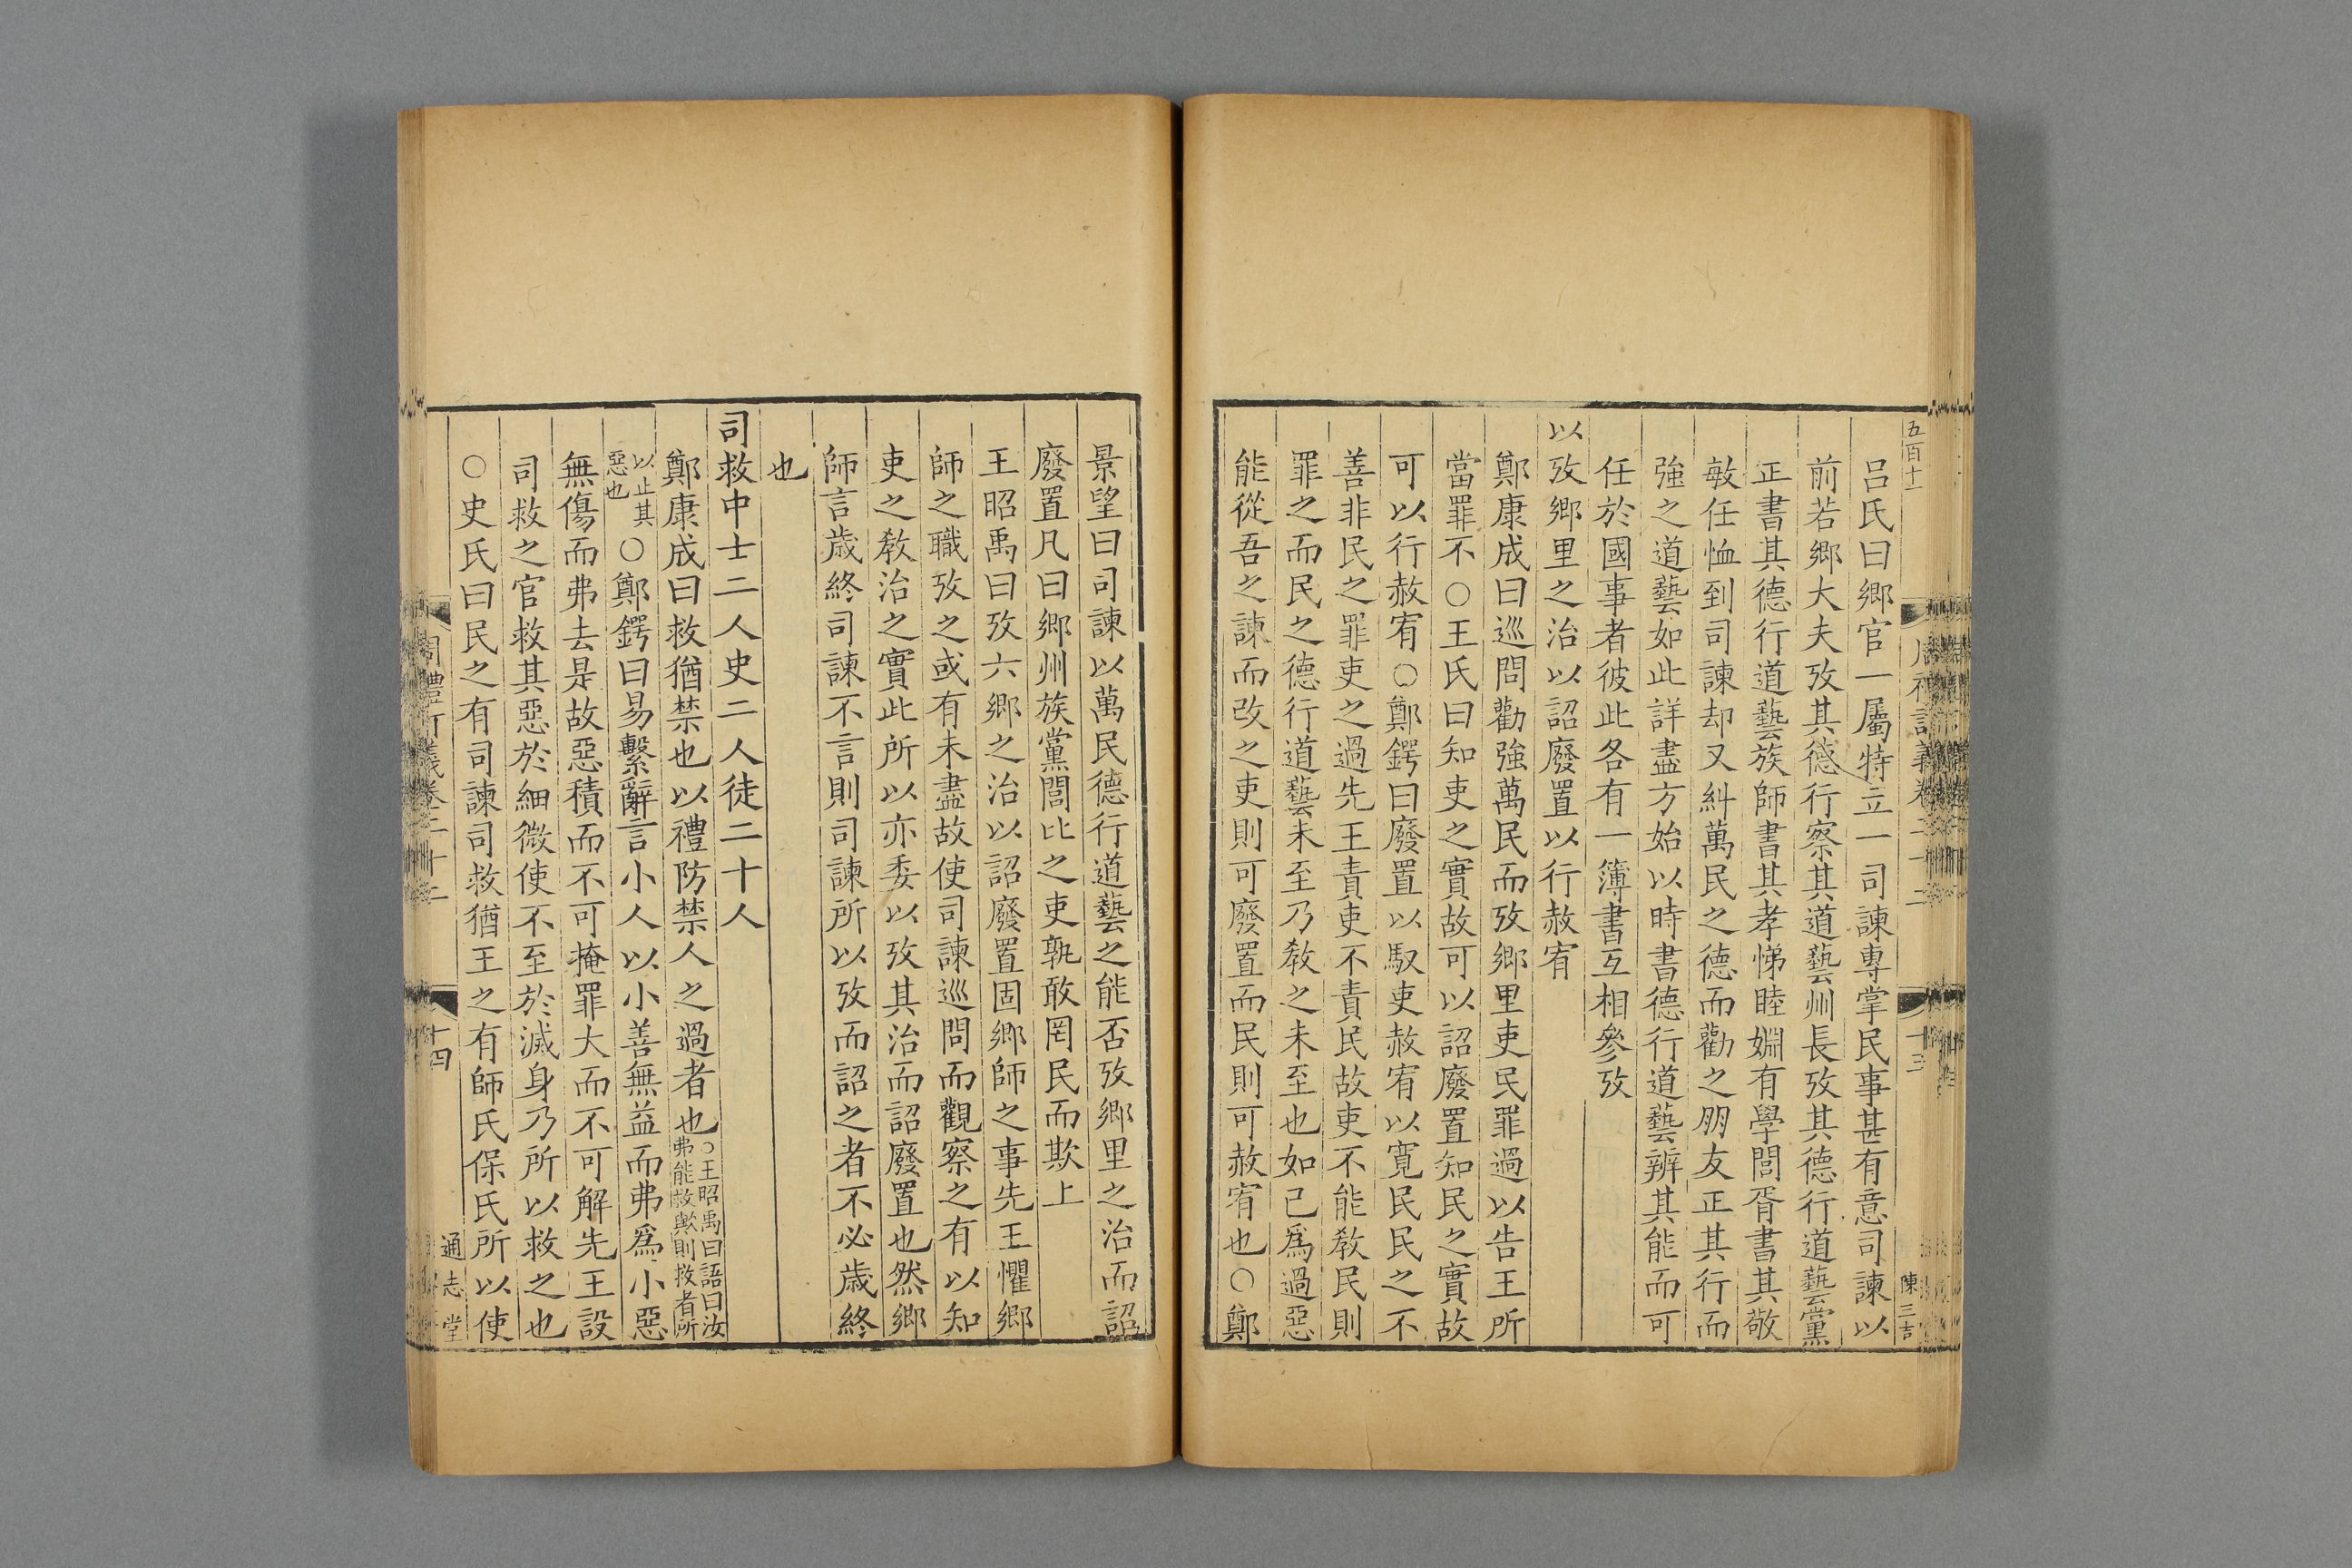 五百十一
吕氏曰鄉官一屬特立一司諫專掌民事甚有意司諫以
前若鄉大夫攷其德行察其道藝州長攷其德行道藝黨
正書其德行道藝族師書其孝悌睦婣有學閭胥書其敬
敏任恤到司諫却又糾萬民之德而勸之朋友正其行而
強之道藝如此詳盡方始以時書德行道藝辨其能而可
任於國事者彼此各有一簿書互相參攷
以攷鄉里之治以詔廢置以行赦宥
鄭康成曰巡問勸強萬民而攷鄉里吏民罪過以告王所
當罪不○王氏曰知吏之實故可以詔廢置知民之實故
可以行赦宥○鄭鍔曰廢置以馭吏赦宥以寛民民之不
善非民之罪吏之過先王責吏不責民故吏不能敎民則
罪之而民之德行道藝未至乃敎之未至也如已爲過惡
能從吾之諫而改之吏則可廢置而民則可赦宥也○鄭
十三
陳三吉
景望曰司諫以萬民德行道藝之能否攷鄉里之治而詔
廢置凡曰鄉州族黨閭比之吏孰敢罔民而欺上
王昭禹曰攷六鄉之治以詔廢置固鄉師之事先王懼鄉
師之職攷之或有未盡故使司諫巡問而觀察之有以知
吏之敎治之實此所以亦委以攷其治而詔廢置也然鄉
師言歲終司諫不言則司諫所以攷而詔之者不必歲終
也
司救中士二人史二人徒二十人
鄭康成曰救猶禁也以禮防禁人之過者也○王昭禹曰語曰汝弗能救歟則救者所
以止其惡也○鄭鍔曰易繫辭言小人以小善無益而弗爲小惡
無傷而弗去是故惡積而不可掩罪大而不可解先王設
司救之官救其惡於細微使不至於滅身乃所以救之也
○史氏曰民之有司諫司救猶王之有師氏保氏所以使
周禮訂義卷二十二
十四
通志堂